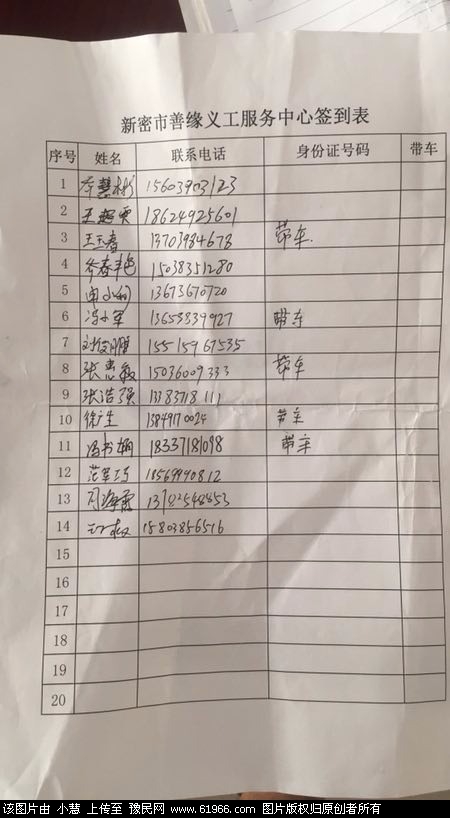 新密市善缘义工服务中心签到表
序号 姓名 联系电话 身份证号码 带车
1 15603903123
2 王超雯 18624925601
3 王玉春 13703984678 带车.
4 15038351280
5 13673670720
6 冯小军 13653839927 带车
7 15515967535
8 张惠敏 15036009333 带车
9 张浩强 13383718111
10 徐广生 13849170024 带车
11 冯书娴 18337181098 带车
12 18569990812
13 周海霞
14 15803856516
15
16
17
18
19
20
该图片由 小慧 上传至 豫民网 www.61966.com 图片版权归原创者所有